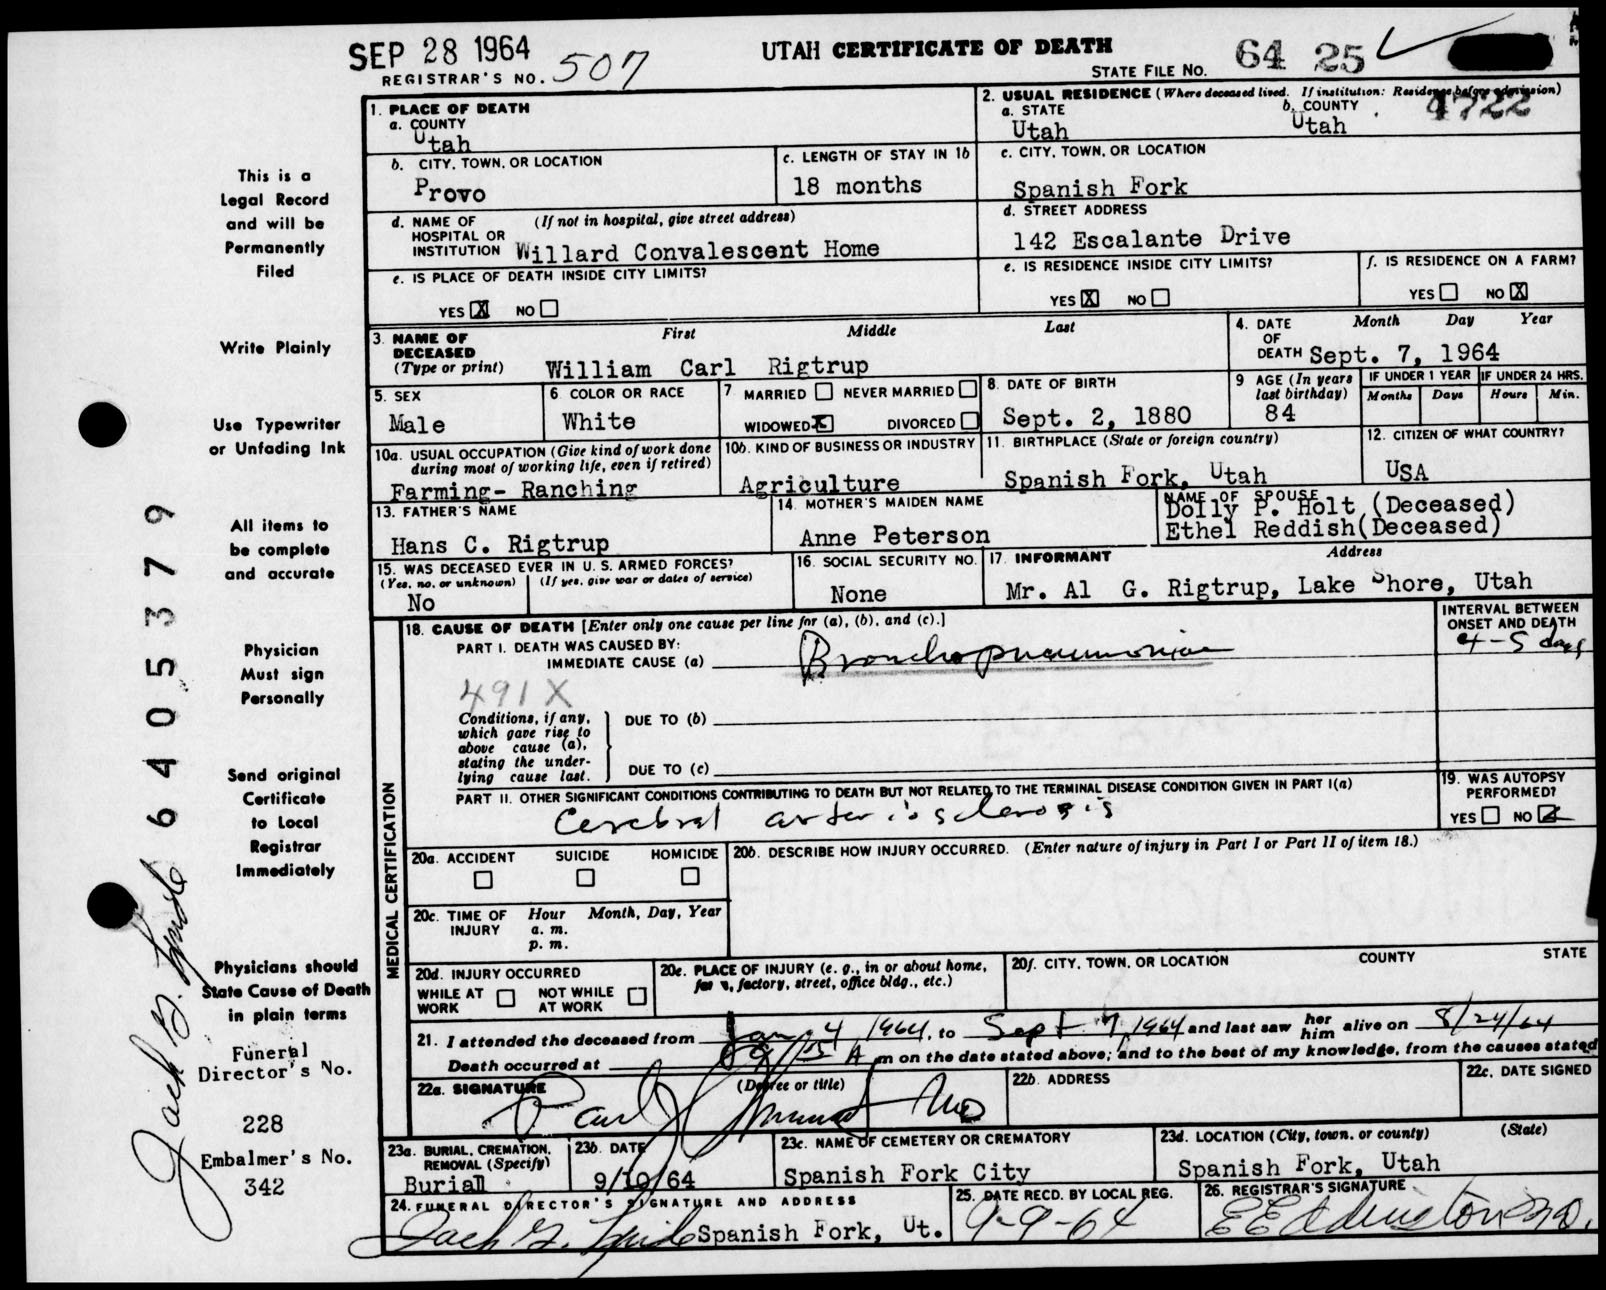 SEP 28 1964
REGISTRAR'S NO. 507
UTAH CERTIFICATE OF DEATH
STATE FILE NO. 64 25
4722
This is a
Legal Record
and will be
Permanently
Filed
Write Plainly
Use Typewriter
or Unfading Ink
All items to
be complete
and accurate
Physician
Must sign
Personally
Send original
Certificate
to Local
Registrar
Immediately
Physicians should
State Cause of Death
in plain terms
Funeral
Director's No.
228
Embalmer's No.
342
6405379
1. PLACE OF DEATH
a. COUNTY
Utah
2. USUAL RESIDENCE (Where deceased lived. If institution: Residence before admission)
a. STATE b. COUNTY
Utah Utah
b. CITY, TOWN, OR LOCATION
Provo
c. LENGTH OF STAY IN 1b
18 months
c. CITY, TOWN, OR LOCATION
Spanish Fork
d. NAME OF (If not in hospital, give street address)
HOSPITAL OR
INSTITUTION Willard Convalescent Home
d. STREET ADDRESS
142 Escalante Drive
e. IS PLACE OF DEATH INSIDE CITY LIMITS?
YES X NO
e. IS RESIDENCE INSIDE CITY LIMITS?
YES X NO
f. IS RESIDENCE ON A FARM?
YES NO X
3. NAME OF DECEASED
(Type or print)
First Middle Last
William Carl Rigtrup
4. DATE OF DEATH
Month Day Year
Sept. 7, 1964
5. SEX
Male
6 COLOR OR RACE
White
7 MARRIED NEVER MARRIED
WIDOWED X DIVORCED
8. DATE OF BIRTH
Sept. 2, 1880
9 AGE (In years
last birthday)
84
IF UNDER 1 YEAR
Months Days
IF UNDER 24 HRS.
Hours Min.
10a. USUAL OCCUPATION (Give kind of work done
during most of working life, even if retired)
Farming- Ranching
10b. KIND OF BUSINESS OR INDUSTRY
Agriculture
11. BIRTHPLACE (State or foreign country)
Spanish Fork, Utah
12. CITIZEN OF WHAT COUNTRY?
USA
13. FATHER'S NAME
Hans C. Rigtrup
14. MOTHER'S MAIDEN NAME
Anne Peterson
NAME OF SPOUSE
Dolly P. Holt (Deceased)
Ethel Reddish(Deceased)
15. WAS DECEASED EVER IN U. S. ARMED FORCES?
(Yes, no, or unknown) (If yes, give war or dates of service)
No
16. SOCIAL SECURITY NO.
None
17. INFORMANT Address
Mr. Al G. Rigtrup, Lake Shore, Utah
MEDICAL CERTIFICATION
18. CAUSE OF DEATH [Enter only one cause per line for (a), (b), and (c).]
PART I. DEATH WAS CAUSED BY:
IMMEDIATE CAUSE (a) Bronchopneumonia
INTERVAL BETWEEN
ONSET AND DEATH
4-5 days
491X
Conditions, if any,
which gave rise to
above cause (a),
stating the under-
lying cause last.
DUE TO (b)
DUE TO (c)
PART II. OTHER SIGNIFICANT CONDITIONS CONTRIBUTING TO DEATH BUT NOT RELATED TO THE TERMINAL DISEASE CONDITION GIVEN IN PART I(a)
Cerebral arteriosclerosis
19. WAS AUTOPSY
PERFORMED?
YES NO X
20a. ACCIDENT SUICIDE HOMICIDE
20b. DESCRIBE HOW INJURY OCCURRED. (Enter nature of injury in Part I or Part II of item 18.)
20c. TIME OF INJURY
Hour Month, Day, Year
a. m.
p. m.
20d. INJURY OCCURRED
WHILE AT WORK NOT WHILE AT WORK
20e. PLACE OF INJURY (e. g., in or about home,
farm, factory, street, office bldg., etc.)
20f. CITY, TOWN, OR LOCATION COUNTY STATE
21. I attended the deceased from Jan 4 1964, to Sept 7, 1964 and last saw her him alive on 8/24/64
Death occurred at A m on the date stated above; and to the best of my knowledge, from the causes stated
22a. SIGNATURE (Degree or title)
Carl MD
22b. ADDRESS
22c. DATE SIGNED
23a. BURIAL, CREMATION,
REMOVAL (Specify)
Burial
23b. DATE
9/10/64
23c. NAME OF CEMETERY OR CREMATORY
Spanish Fork City
23d. LOCATION (City, town, or county) (State)
Spanish Fork, Utah
24. FUNERAL DIRECTOR'S SIGNATURE AND ADDRESS
Spanish Fork, Ut.
25. DATE RECD. BY LOCAL REG.
9-9-64
26. REGISTRAR'S SIGNATURE